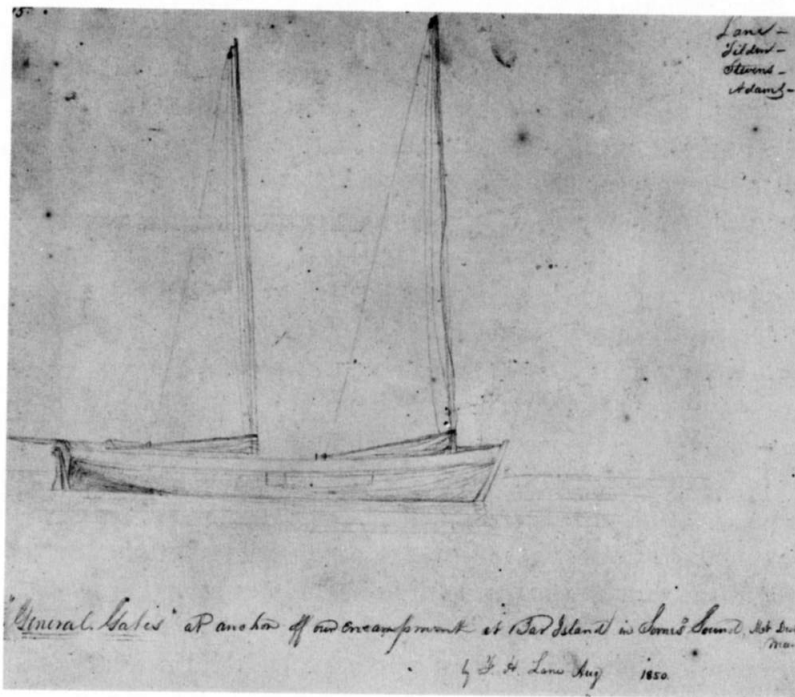 15.
Lane -
Tilden -
Stevens -
Adams -
"General Gates" at anchor off our encampment at Bar Island in Somes Sound, Mt
by F. H. Lane Aug 1850.